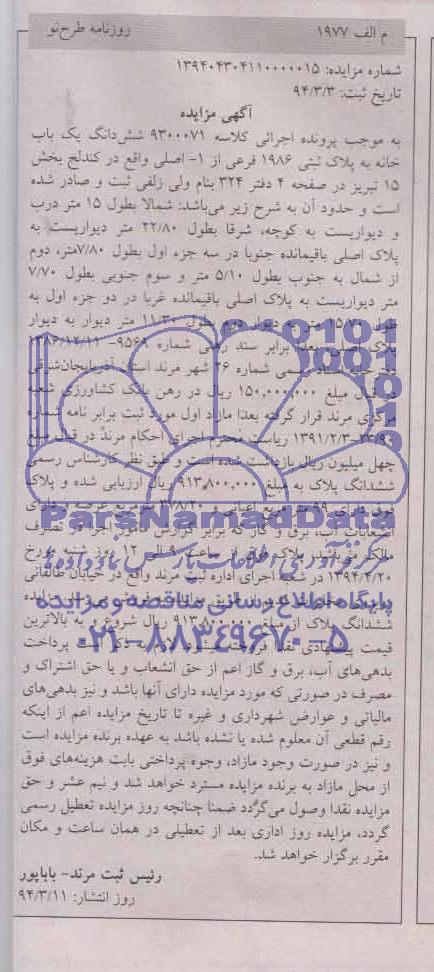 م الف ۱۹۷۷
روزنامه طرح‌نو
شماره مزایده: ۱۳۹۴۰۴۳۰۴۱۱۰۰۰۰۰۱۵
تاریخ ثبت: ۹۴/۳/۳
آگهی مزایده
به موجب پرونده اجرائی کلاسه ۹۳۰۰۰۷۱ ششدانگ یک باب
خانه به پلاک ثبتی ۱۹۸۶ فرعی از ۱- اصلی واقع در کندلج بخش
۱۵ تبریز در صفحه ۴ دفتر ۳۲۴ بنام ولی زلفی ثبت و صادر شده
است و حدود آن به شرح زیر می‌باشد: شمالا بطول ۱۵ متر درب
و دیواریست به کوچه، شرقا بطول ۲۲/۸۰ متر دیواریست به
پلاک اصلی باقیمانده جنوبا در سه جزء اول بطول ۷/۸۰متر، دوم
از شمال به جنوب بطول ۵/۱۰ متر و سوم جنوبی بطول ۷/۷۰
متر دیواریست به پلاک اصلی باقیمانده غربا در دو جزء اول به
طول ۱۵/۷۰ متر به دیوار دوم بطول ۱۱/۳۰ متر دیوار به دیوار
پلاک برابر سند رهنی شماره ۹۵۶۹- ۱۳۸۶/۱۲/۱۱
دفترخانه اسناد رسمی شماره ۲۶ شهر مرند استان آذربایجان‌شرقی
در قبال مبلغ ۱۵۰,۰۰۰,۰۰۰ ریال در رهن بانک کشاورزی شعبه
مرکزی مرند قرار گرفته بعدا مازاد اول مورد ثبت برابر نامه شماره
۱۳۹۱/۲/۳ ریاست محترم اجرای احکام مرند در قبال مبلغ
چهل میلیون ریال بازداشت شده است و طبق نظر کارشناس رسمی
ششدانگ پلاک به مبلغ ۹۱۳,۸۰۰,۰۰۰ ریال ارزیابی شده و پلاک
فوق دارای ۹۹ متر مربع اعیانی و ۳۷۸/۲۰ مترمربع عرصه و دارای
انشعابات آب، برق و گاز که برابر گزارش مامور اجرا در تصرف
مالک می‌باشد. پلاک فوق از ساعت ۹ الی ۱۲ روز شنبه مورخ
۱۳۹۴/۴/۲۰ در شعبه اجرای اداره ثبت مرند واقع در خیابان طالقانی
از طریق مزایده به فروش می‌رسد. مزایده
ششدانگ پلاک از مبلغ ۹۱۳,۸۰۰,۰۰۰ ریال شروع و به بالاترین
قیمت پیشنهادی نقدا فروخته می‌شود. پرداخت
بدهی‌های آب، برق و گاز اعم از حق انشعاب و یا حق اشتراک و
مصرف در صورتی که مورد مزایده دارای آنها باشد و نیز بدهی‌های
مالیاتی و عوارض شهرداری و غیره تا تاریخ مزایده اعم از اینکه
رقم قطعی آن معلوم شده یا نشده باشد به عهده برنده مزایده است
و نیز در صورت وجود مازاد، وجوه پرداختی بابت هزینه‌های فوق
از محل مازاد به برنده مزایده مسترد خواهد شد و نیم عشر و حق
مزایده نقدا وصول می‌گردد ضمنا چنانچه روز مزایده تعطیل رسمی
گردد، مزایده روز اداری بعد از تعطیلی در همان ساعت و مکان
مقرر برگزار خواهد شد.
رئیس ثبت مرند- باباپور
روز انتشار: ۹۴/۳/۱۱
ParsNamadData
پایگاه اطلاع رسانی مناقصه و مزایده
۰۲۱-۸۸۳۴۹۶۷۰-۵